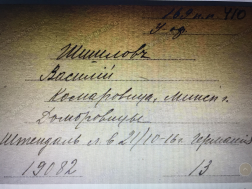 Шишловъ
Василій
Комаровица, Минск. г.
Доморовицы
Штендаль л в 21/10-16г. Германія
19082 13